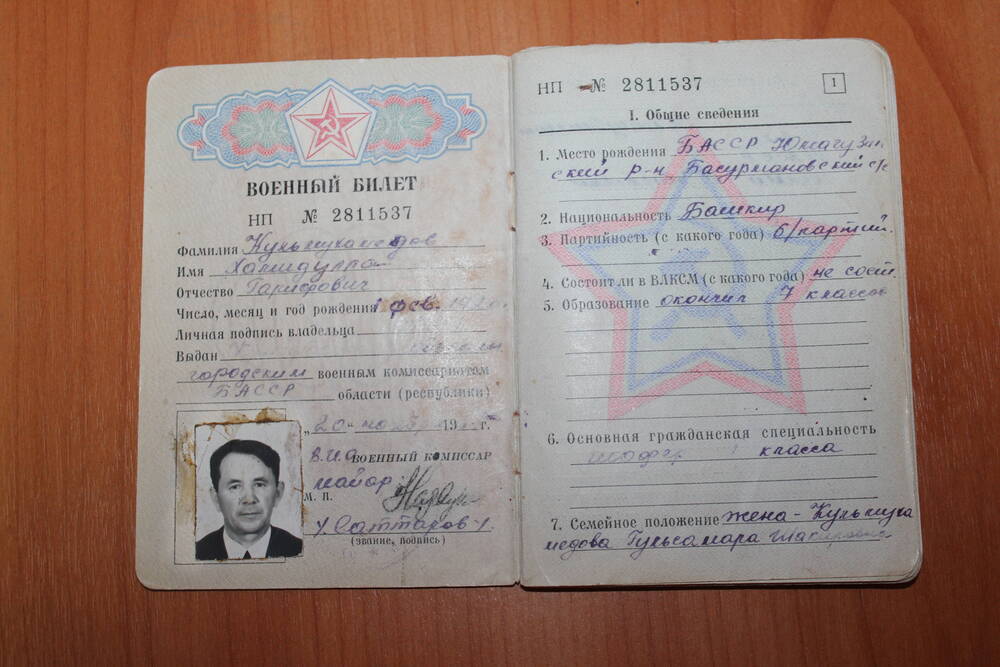 ВОЕННЫЙ БИЛЕТ
НП № 2811537
Фамилия Кульмухамедов
Имя Хамидулла
Отчество Гарифович
Число, месяц и год рождения 1 фев.
Личная подпись владельца
Выдан
городским военным комиссариатом
БАССР области (республики)
„20" 19 г.
В.И.О ВОЕННЫЙ КОМИССАР
майор
М. П.
Саттаров
(звание, подпись)
НП № 2811537
1
I. Общие сведения
1. Место рождения БАССР Юмагузин
ский р-н, Басурмановский с/с
2. Национальность Башкир
3. Партийность (с какого года) б/партий.
4. Состоит ли в ВЛКСМ (с какого года) не сост.
5. Образование окончил 7 классов
6. Основная гражданская специальность
шофер класса
7. Семейное положение жена - Кульмуха
медова Гульсамара